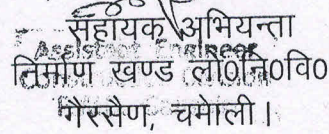 सहायक अभियन्ता
Assistant Engineer
निर्माण खण्ड लो0नि0वि0
गैरसैण, चमोली।